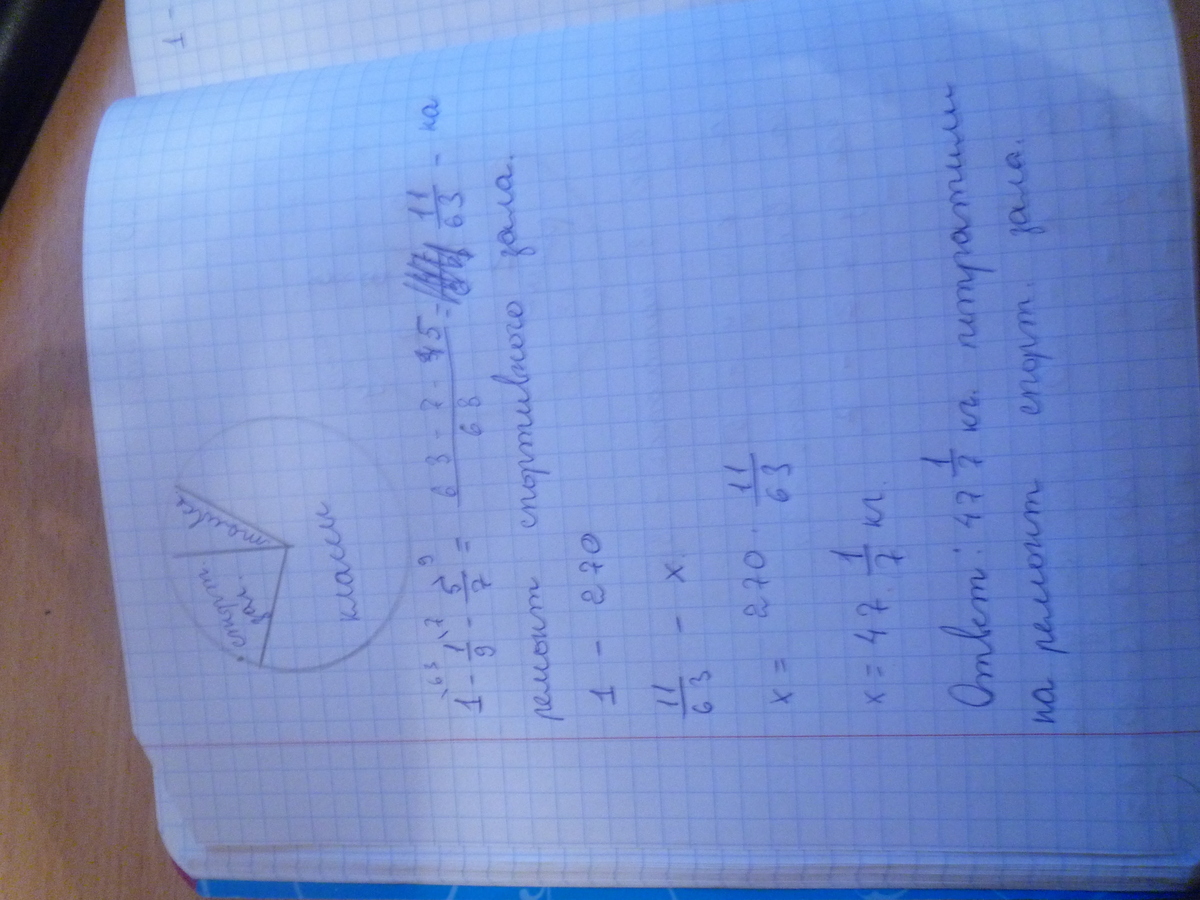 1 -
спорт.
зал.
классы
1 - 1/9 - 5/7 = (63 - 7 - 45)/63 = 11/63 - на
ремонт спортивного зала.
1 - 270
11/63 - x
x = 270 · 11/63
x = 47 1/7 кг.
Ответ: 47 1/7 кг. потратили
на ремонт спорт. зала.